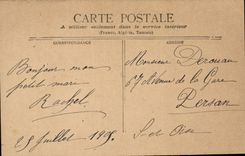 CARTE POSTALE
A utiliser seulement dans le service intérieur
(France, Algérie, Tunisie)
CORRESPONDANCE
ADRESSE
Bonjour mon
petit mari
Rachel
25 Juillet
Monsieur Derouan
67 Avenue de la Gare
Persan
S-et Oise